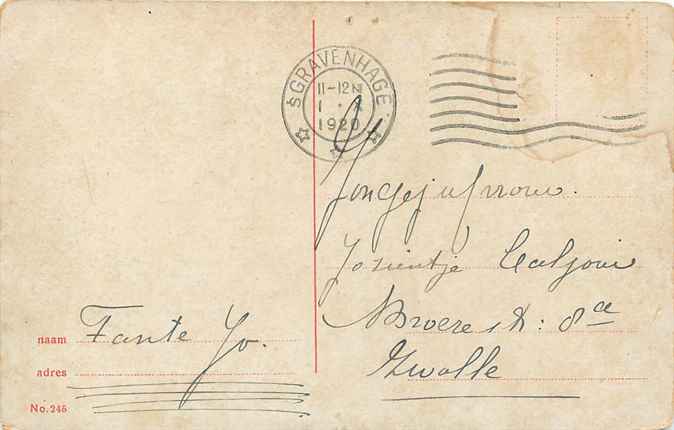 'SGRAVENHAGE
11-12N
1920
Jongejufrouw.
Josientje Caljouw
Broerestr: 8ce
Zwolle
naam Tante Jo.
adres
No. 245